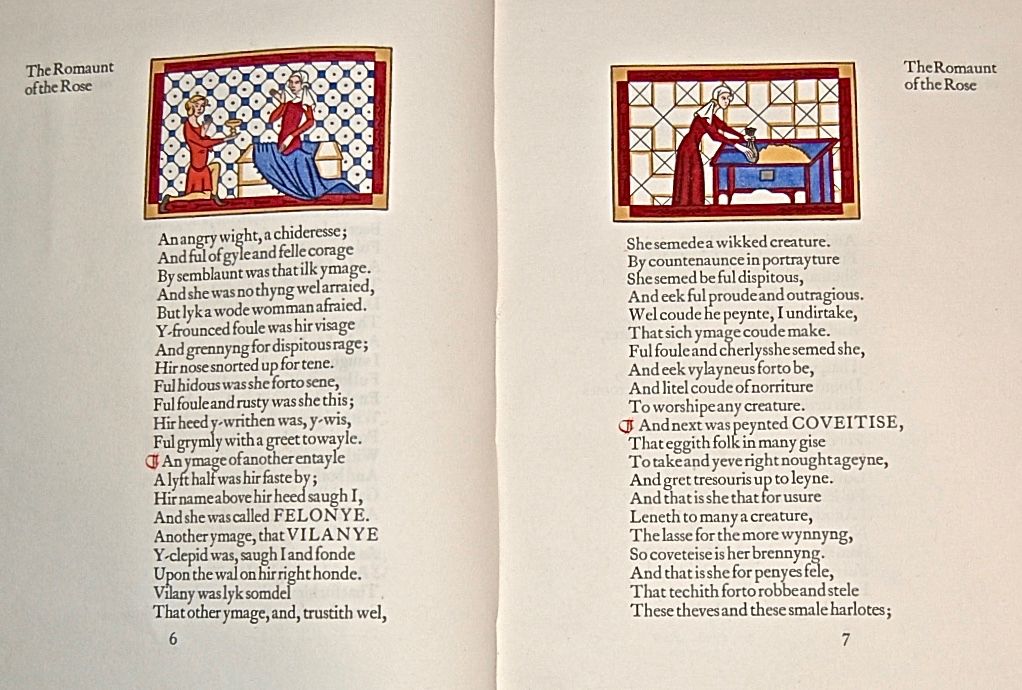 The Romaunt
of the Rose
An angry wight, a chideresse;
And ful of gyle and felle corage
By semblaunt was that ilk ymage.
And she was no thyng wel arraied,
But lyk a wode womman afraied.
Y-frounced foule was hir visage
And grennyng for dispitous rage;
Hir nose snorted up for tene.
Ful hidous was she forto sene,
Ful foule and rusty was she this;
Hir heed y-writhen was, y-wis,
Ful grymly with a greet towayle.
¶ An ymage of another entayle
A lyft half was hir faste by;
Hir name above hir heed saugh I,
And she was called FELONYE.
Another ymage, that VILANYE
Y-clepid was, saugh I and fonde
Upon the wal on hir right honde.
Vilany was lyk somdel
That other ymage, and, trustith wel,
6
The Romaunt
of the Rose
She semede a wikked creature.
By countenaunce in portrayture
She semed be ful dispitous,
And eek ful proude and outragious.
Wel coude he peynte, I undirtake,
That sich ymage coude make.
Ful foule and cherlysshe semed she,
And eek vylayneus forto be,
And litel coude of norriture
To worshipe any creature.
¶ And next was peynted COVEITISE,
That eggith folk in many gise
To take and yeve right nought ageyne,
And gret tresouris up to leyne.
And that is she that for usure
Leneth to many a creature,
The lasse for the more wynnyng,
So coveteise is her brennyng.
And that is she for penyes fele,
That techith forto robbe and stele
These theves and these smale harlotes;
7